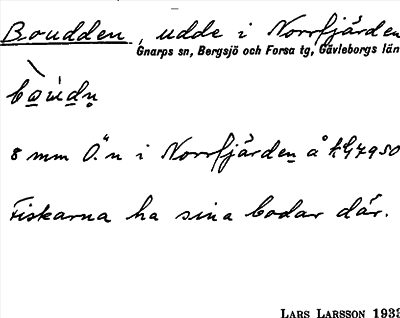 Boudden, udde i Norrfjärden
Gnarps sn, Bergsjö och Forsa tg, Gävleborgs län
8 mm Ö. n i Norrfjärden å
Fiskarna ha sina bodar där.
LARS LARSSON 1933